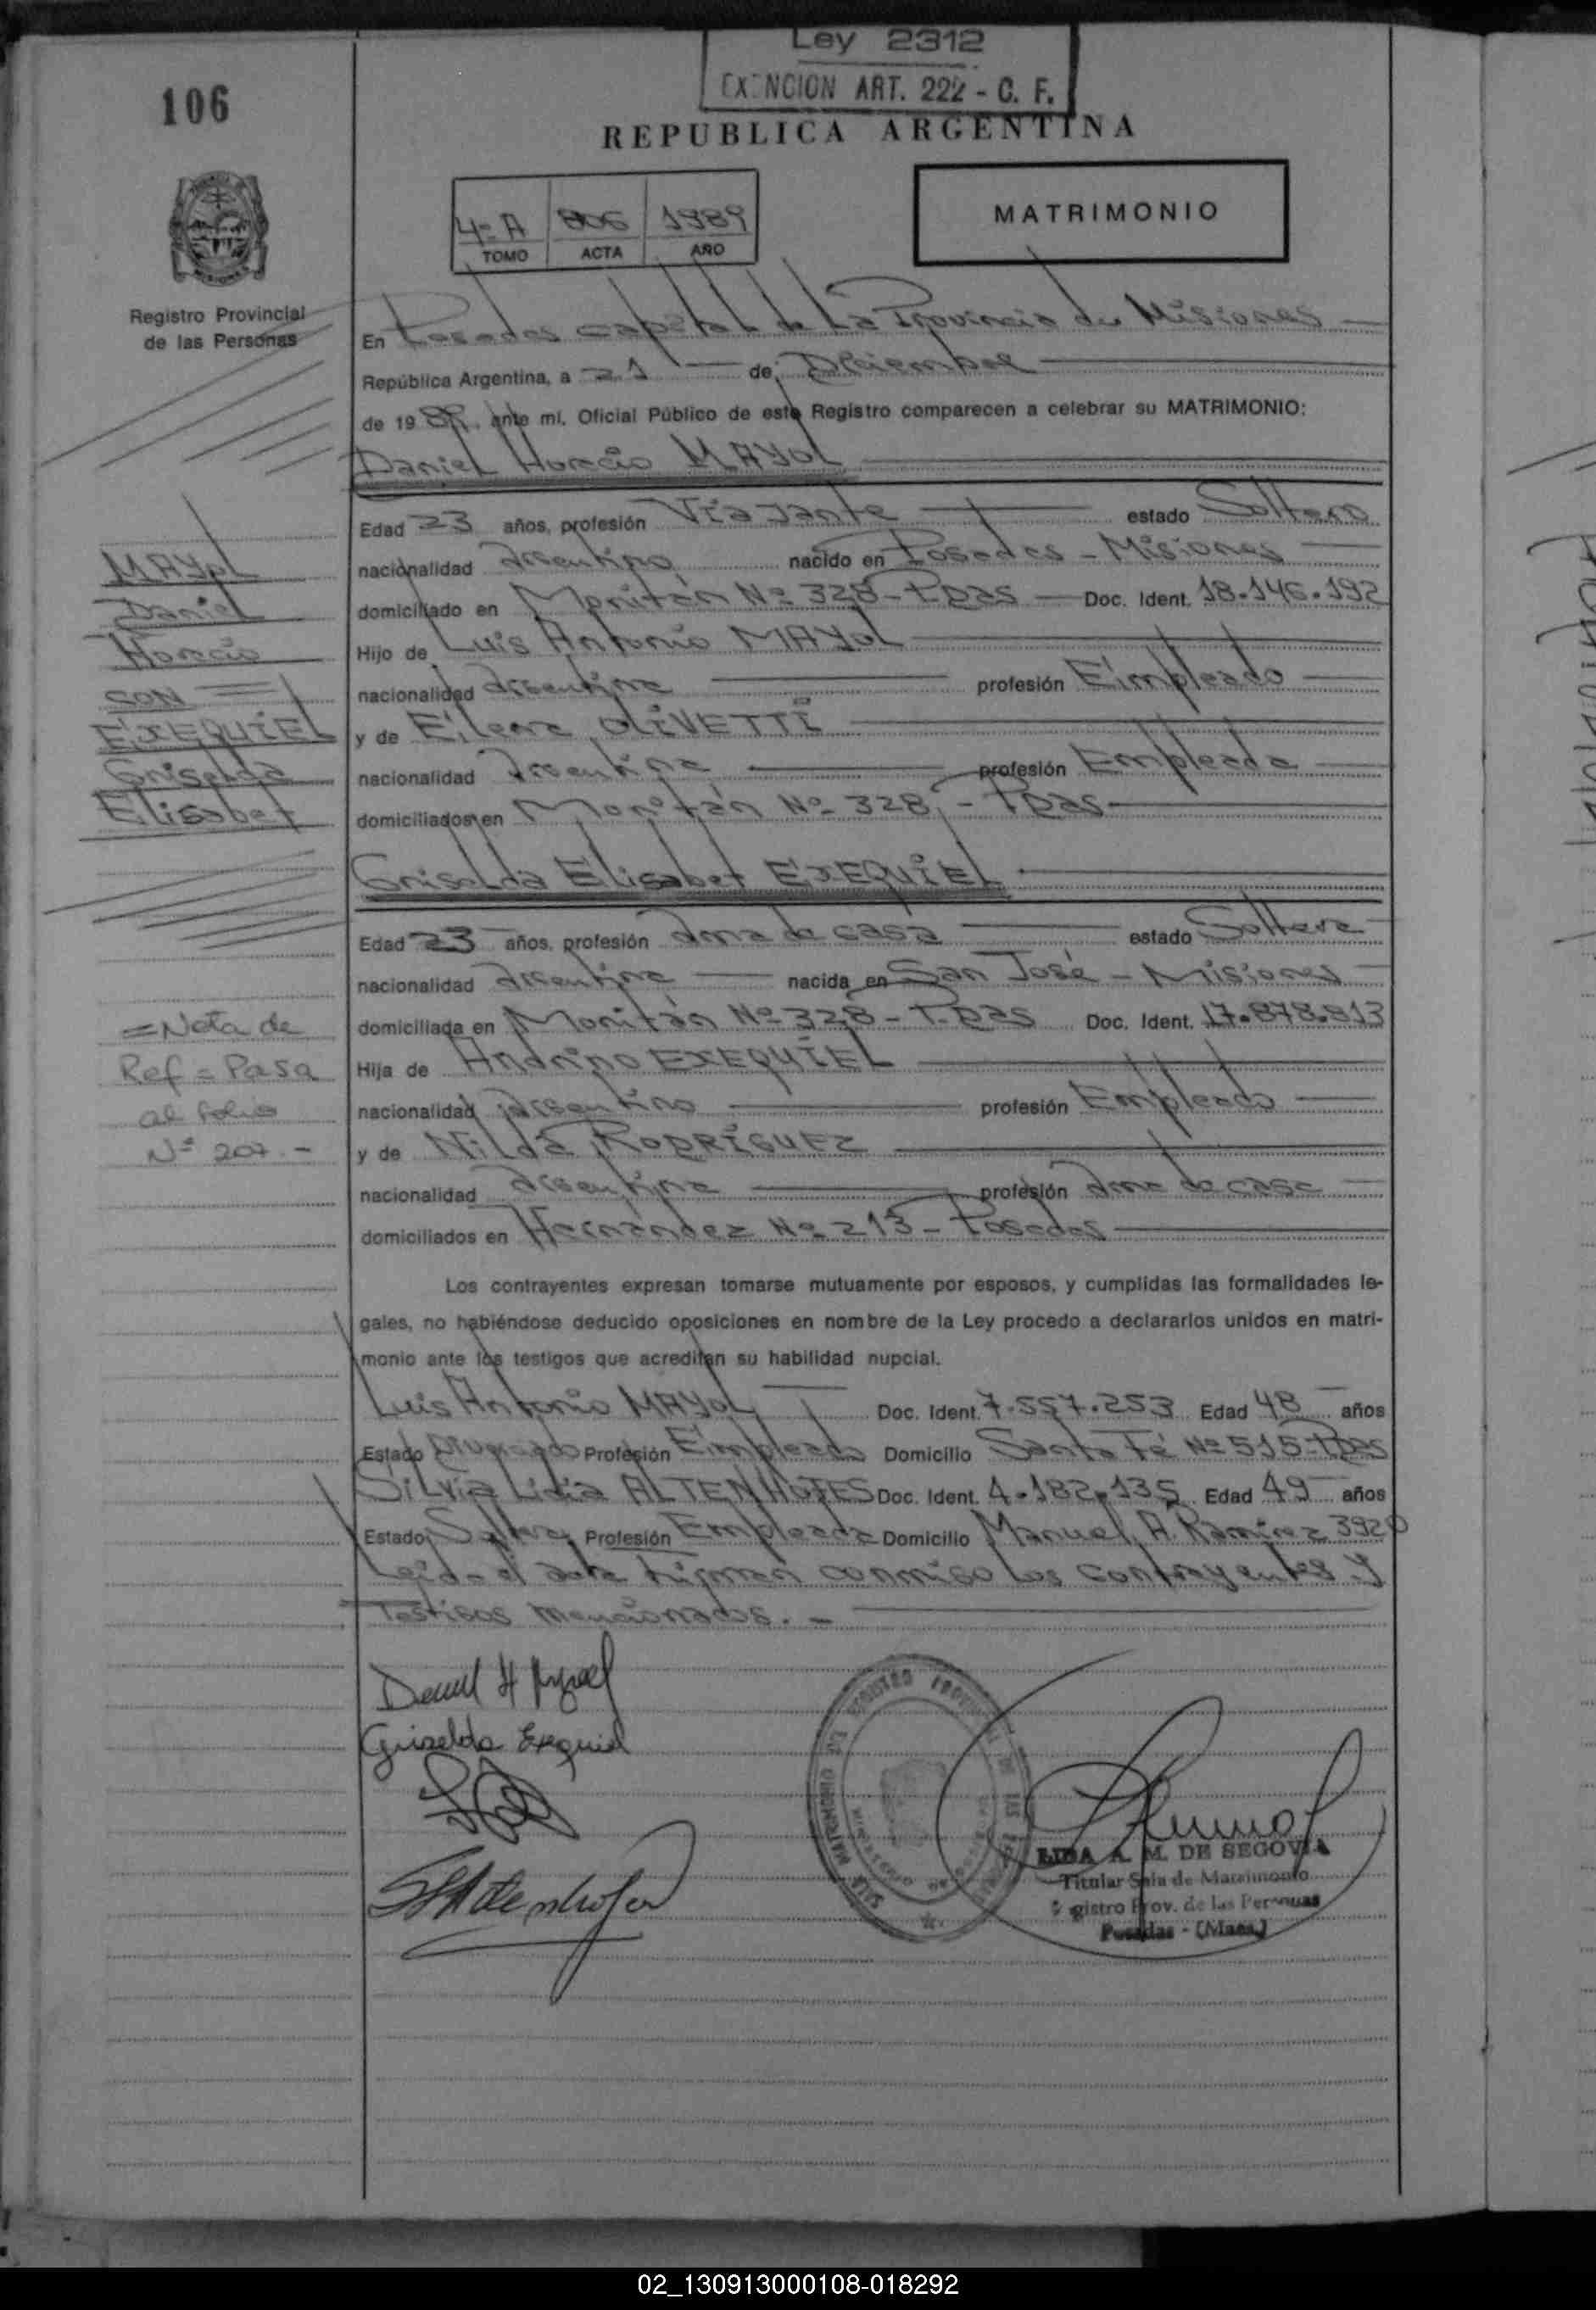 Ley 2312
EXENCION ART. 222 - C. F.
106
REPUBLICA ARGENTINA
4º A 806 1989
TOMO ACTA AÑO
MATRIMONIO
Registro Provincial
de las Personas
En Posadas capital de La Provincia de Misiones
República Argentina, a 21 de Diciembre
de 1989 ante mí, Oficial Público de este Registro comparecen a celebrar su MATRIMONIO:
Daniel Horacio MAYOL
Edad 23 años, profesión Viajante estado Soltero
nacionalidad Argentino nacido en Posadas - Misiones
domiciliado en Monitán Nº 328 - Pdas Doc. Ident. 18.146.192
Hijo de Luis Antonio MAYOL
nacionalidad Argentina profesión Empleado
y de Elena OLIVETTI
nacionalidad Argentina profesión Empleada
domiciliados en Monitán Nº 328 - Pdas
Griselda Elisabet EXEQUIEL
Edad 23 años, profesión Ama de casa estado Soltera
nacionalidad Argentina nacida en San José - Misiones
domiciliada en Monitán Nº 328 - Pdas Doc. Ident. 17.878.813
Hija de EXEQUIEL
nacionalidad Argentino profesión Empleado
y de Nilda RODRIGUEZ
nacionalidad Argentina profesión Ama de casa
domiciliados en Hernandez Nº 213 - Posadas
Los contrayentes expresan tomarse mutuamente por esposos, y cumplidas las formalidades le-
gales, no habiéndose deducido oposiciones en nombre de la Ley procedo a declararlos unidos en matri-
monio ante los testigos que acreditan su habilidad nupcial.
Luis Antonio MAYOL Doc. Ident. 7.557.253 Edad 48 años
Estado Divorciado Profesión Empleado Domicilio Santa Fé Nº 515 - Pdas
Silvia Lidia ALTENHOFES Doc. Ident. 4.182.135 Edad 49 años
Estado Soltera Profesión Empleada Domicilio Manuel A. Ramirez 3920
Leida el acta firman conmigo los contrayentes y
Testigos mencionados. -
MAYOL
Daniel
Horacio
CON =
EXEQUIEL
Griselda
Elisabet
= Nota de
Ref = Pasa
al folio
Nº 207. -
Griselda Exequiel
LIDA A. M. DE SEGOVIA
Titular Sala de Matrimonio
Registro Prov. de las Personas
Posadas - (Mnes.)
02_130913000108-018292